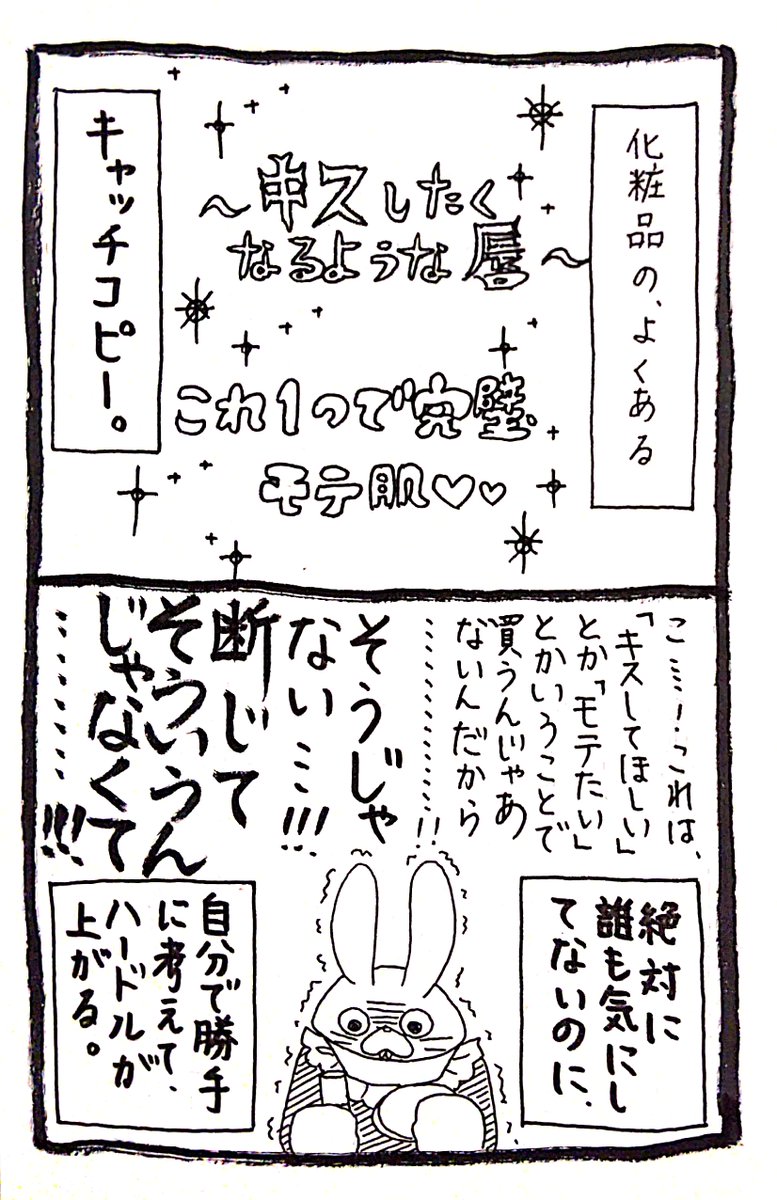 化粧品の、よくある
〜キスしたく
なるような唇〜
これ1つで完璧
モテ肌♡♡
キャッチコピー。
こ……！これは、
「キスしてほしい」
とか「モテたい」
とかいうことで
買うんじゃあ
ないんだから
…………!!
そうじゃ
ない…!!!
断じて
そういうん
じゃなくて
……!!!
絶対に
誰も気にし
てないのに、
自分で勝手
に考えて、
ハードルが
上がる。